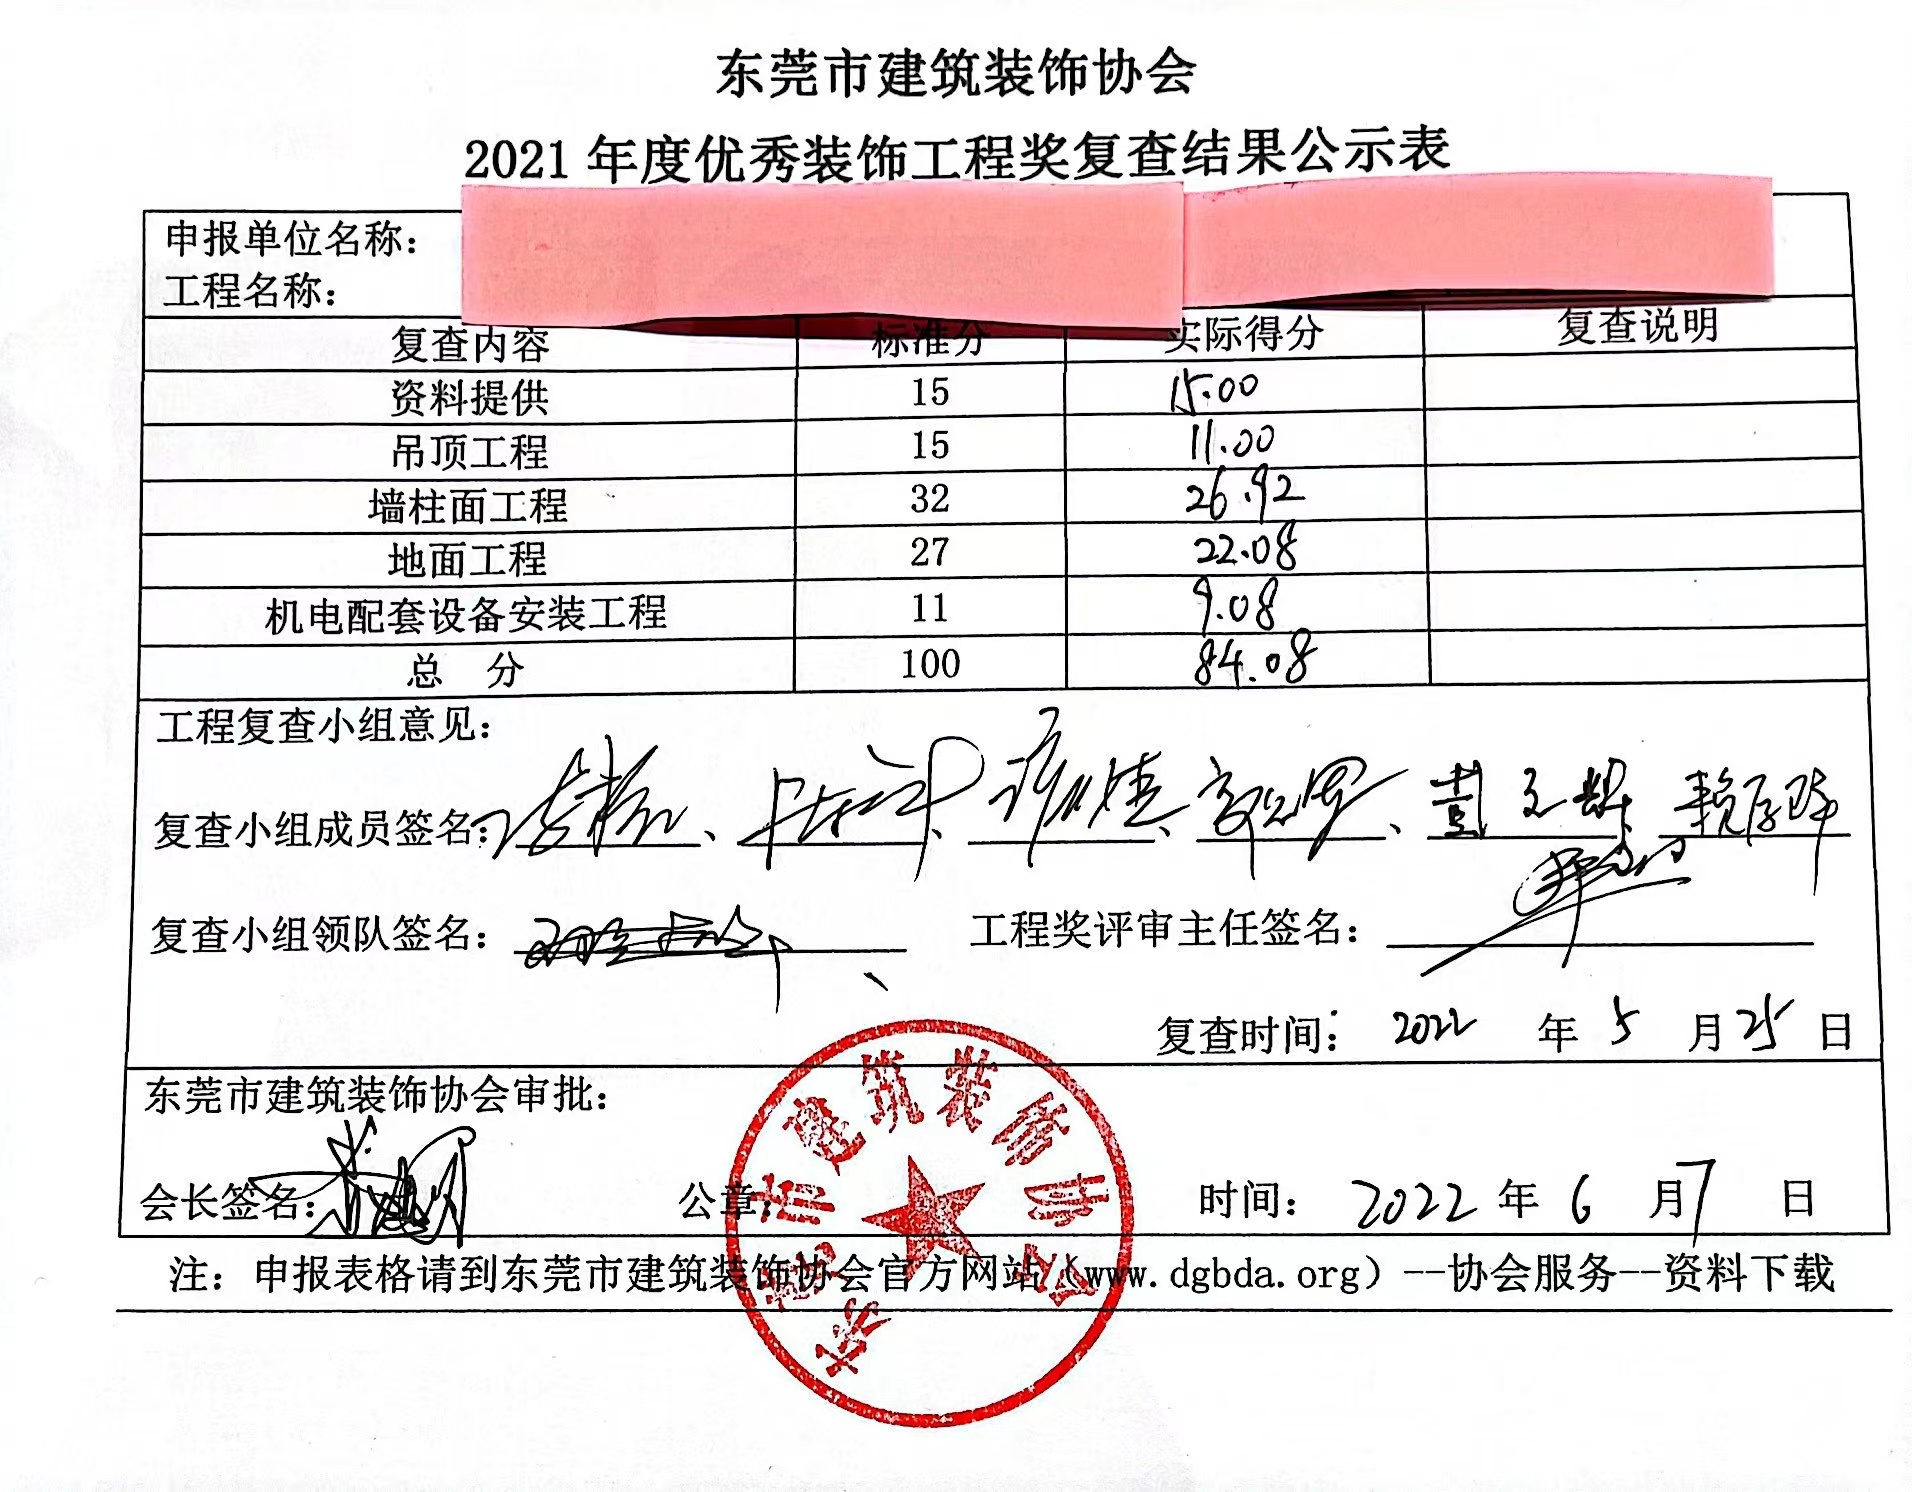 东莞市建筑装饰协会
2021 年度优秀装饰工程奖复查结果公示表
申报单位名称：
工程名称：
复查内容 标准分 实际得分 复查说明
资料提供 15 15.00
吊顶工程 15 11.00
墙柱面工程 32 26.92
地面工程 27 22.08
机电配套设备安装工程 11 9.08
总 分 100 84.08
工程复查小组意见：
复查小组成员签名：
复查小组领队签名： 工程奖评审主任签名：
复查时间： 2022 年 5 月 25 日
东莞市建筑装饰协会审批：
会长签名： 公章： 时间： 2022 年 6 月 7 日
东莞市建筑装饰协会
注：申报表格请到东莞市建筑装饰协会官方网站（www.dgbda.org）--协会服务--资料下载